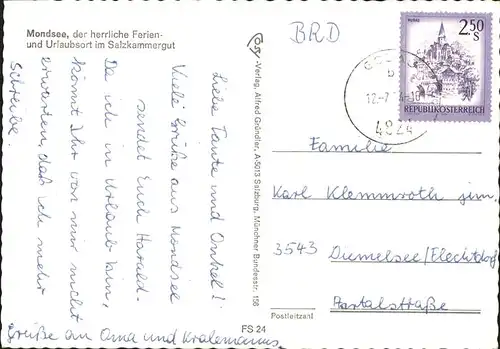 Mondsee, der herrliche Ferien-
und Urlaubsort im Salzkammergut
Liebe Tante und Onkel!
Viele Grüße aus Mondsee
sendet Euch Harald.
Da ich in Urlaub bin,
könnt Ihr von mir nicht
erwarten, daß ich mehr
schreibe.
Grüße an Oma und
Cosy-Verlag, Alfred Gründler, A-5013 Salzburg, Münchner Bundesstr. 156
FS 24
BRD
2.50
S
REPUBLIK ÖSTERREICH
b
12.-7
4824
Familie
Karl Klemmroth jun.
3543 Diemelsee/Flechtdorf
Postleitzahl